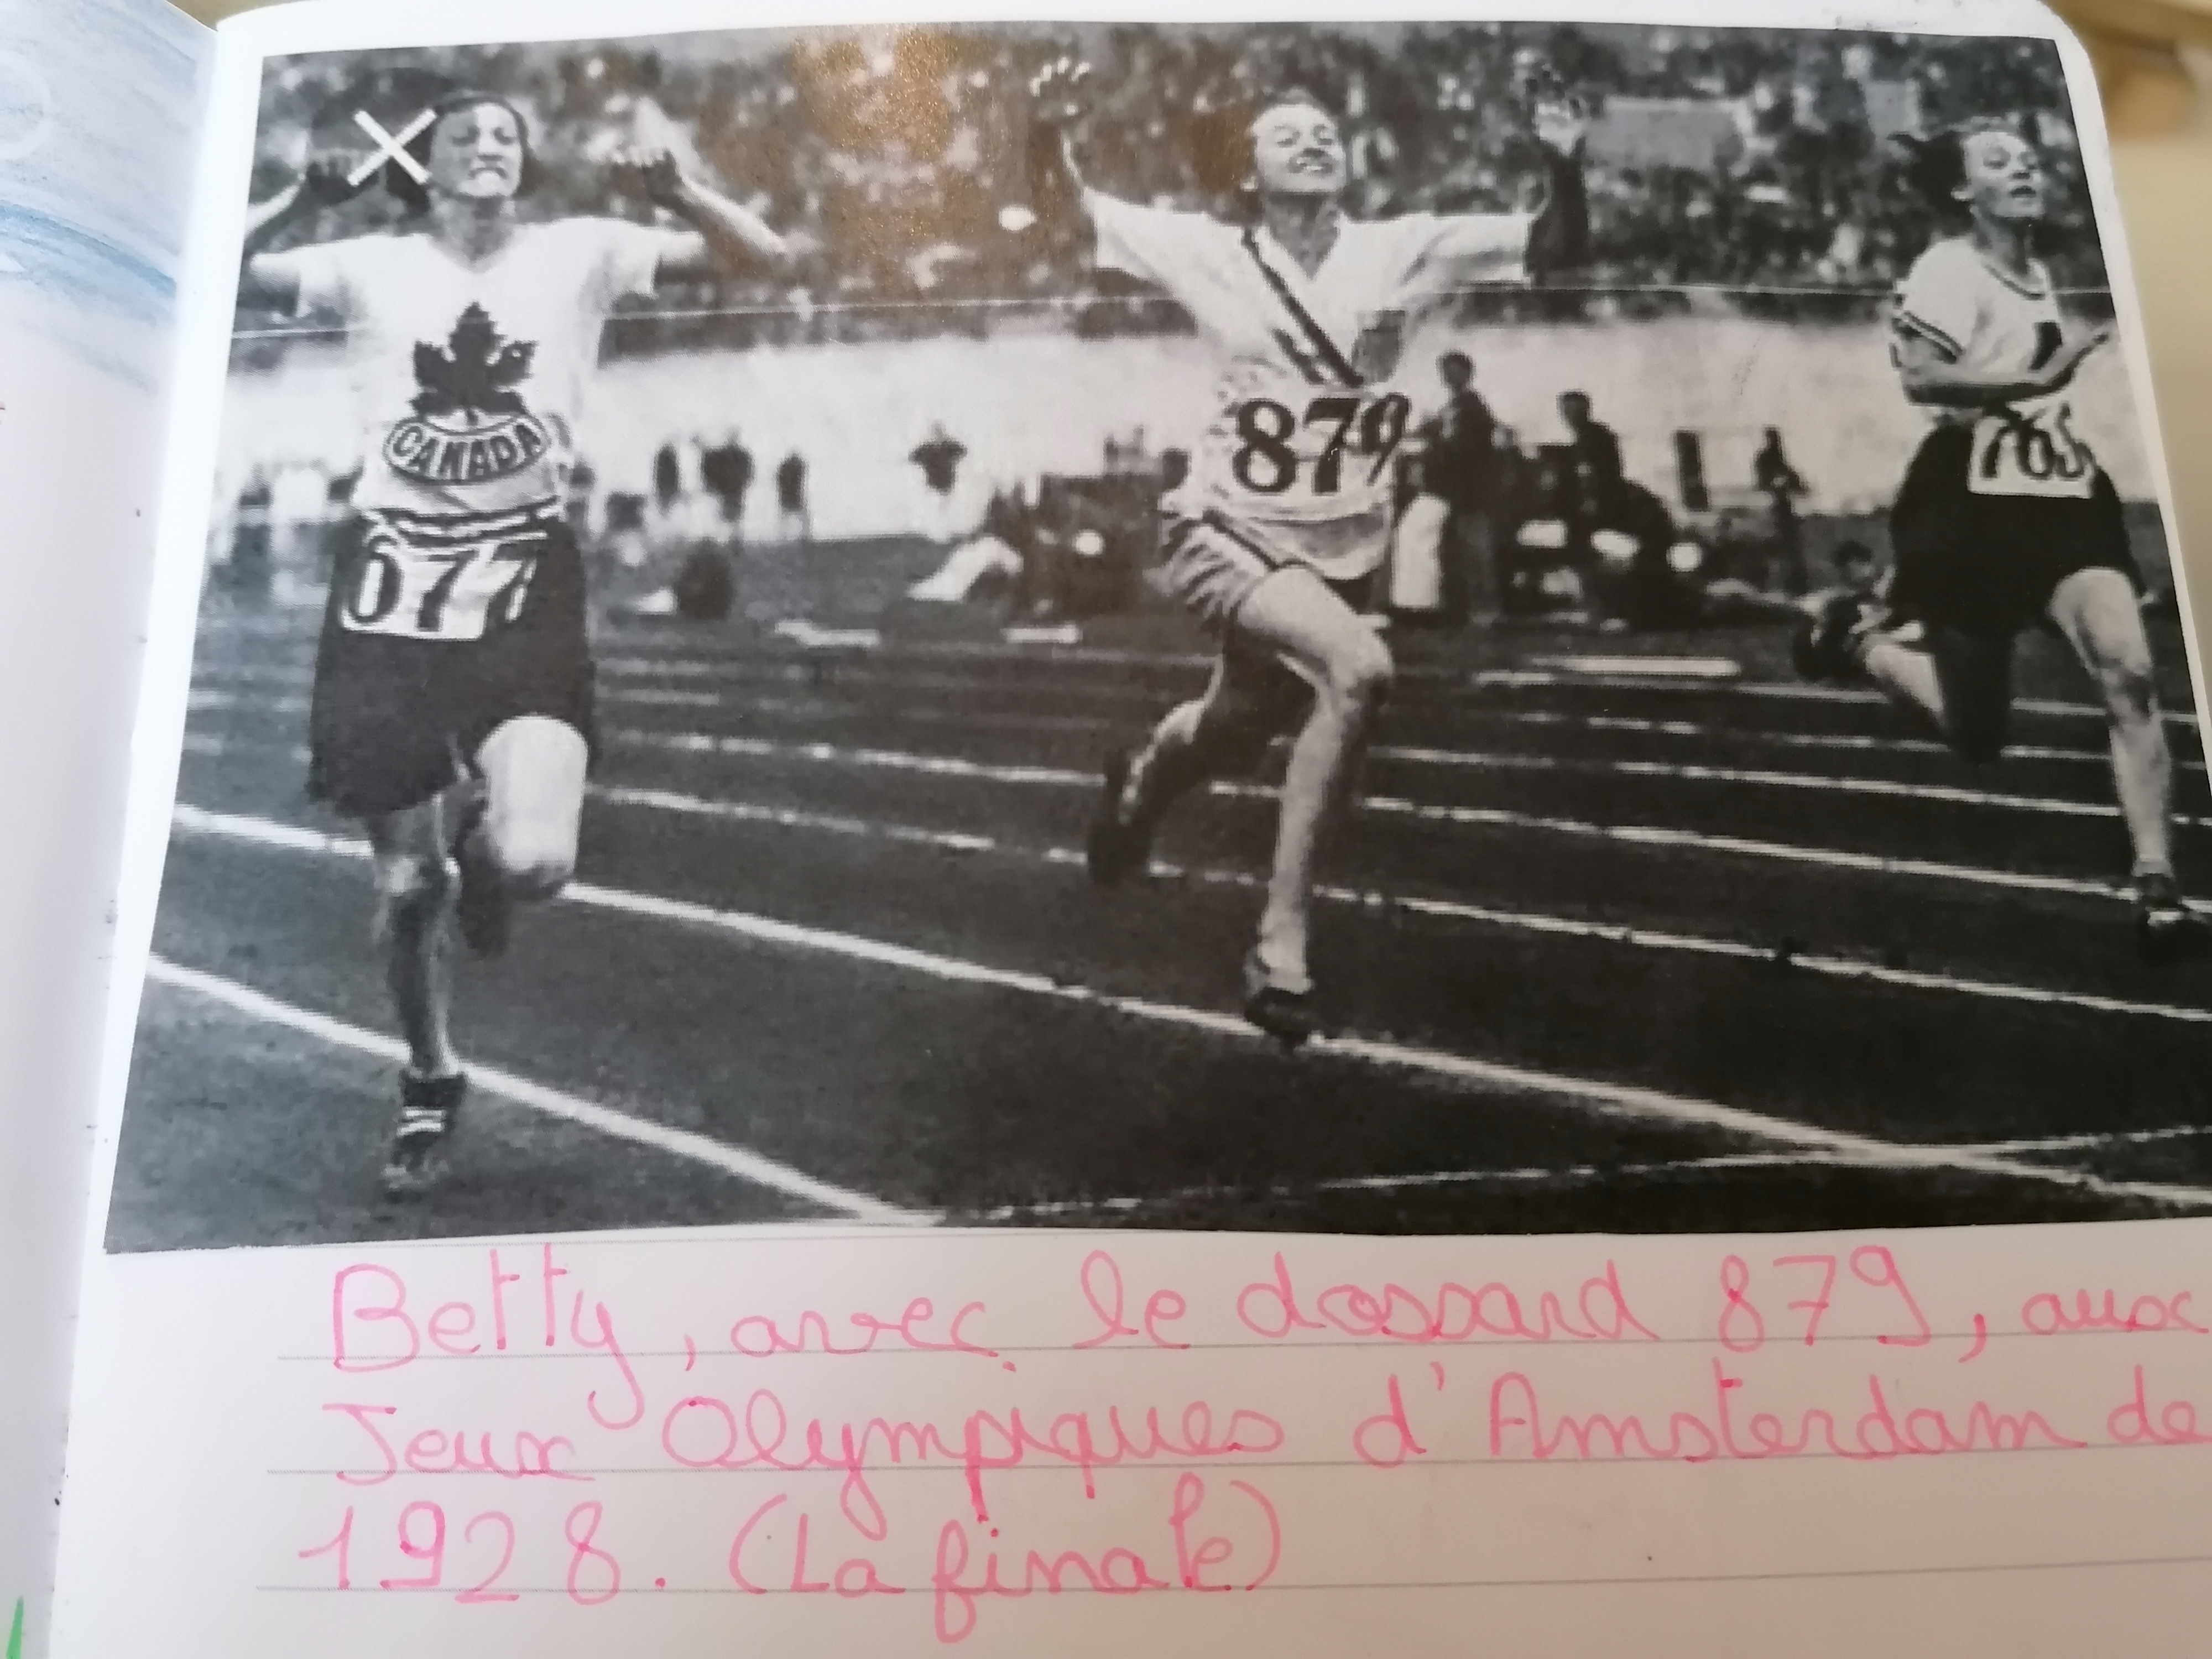 CANADA
677
879
763
Betty, avec le dossard 879, aux
Jeux Olympiques d'Amsterdam de
1928. (La finale)